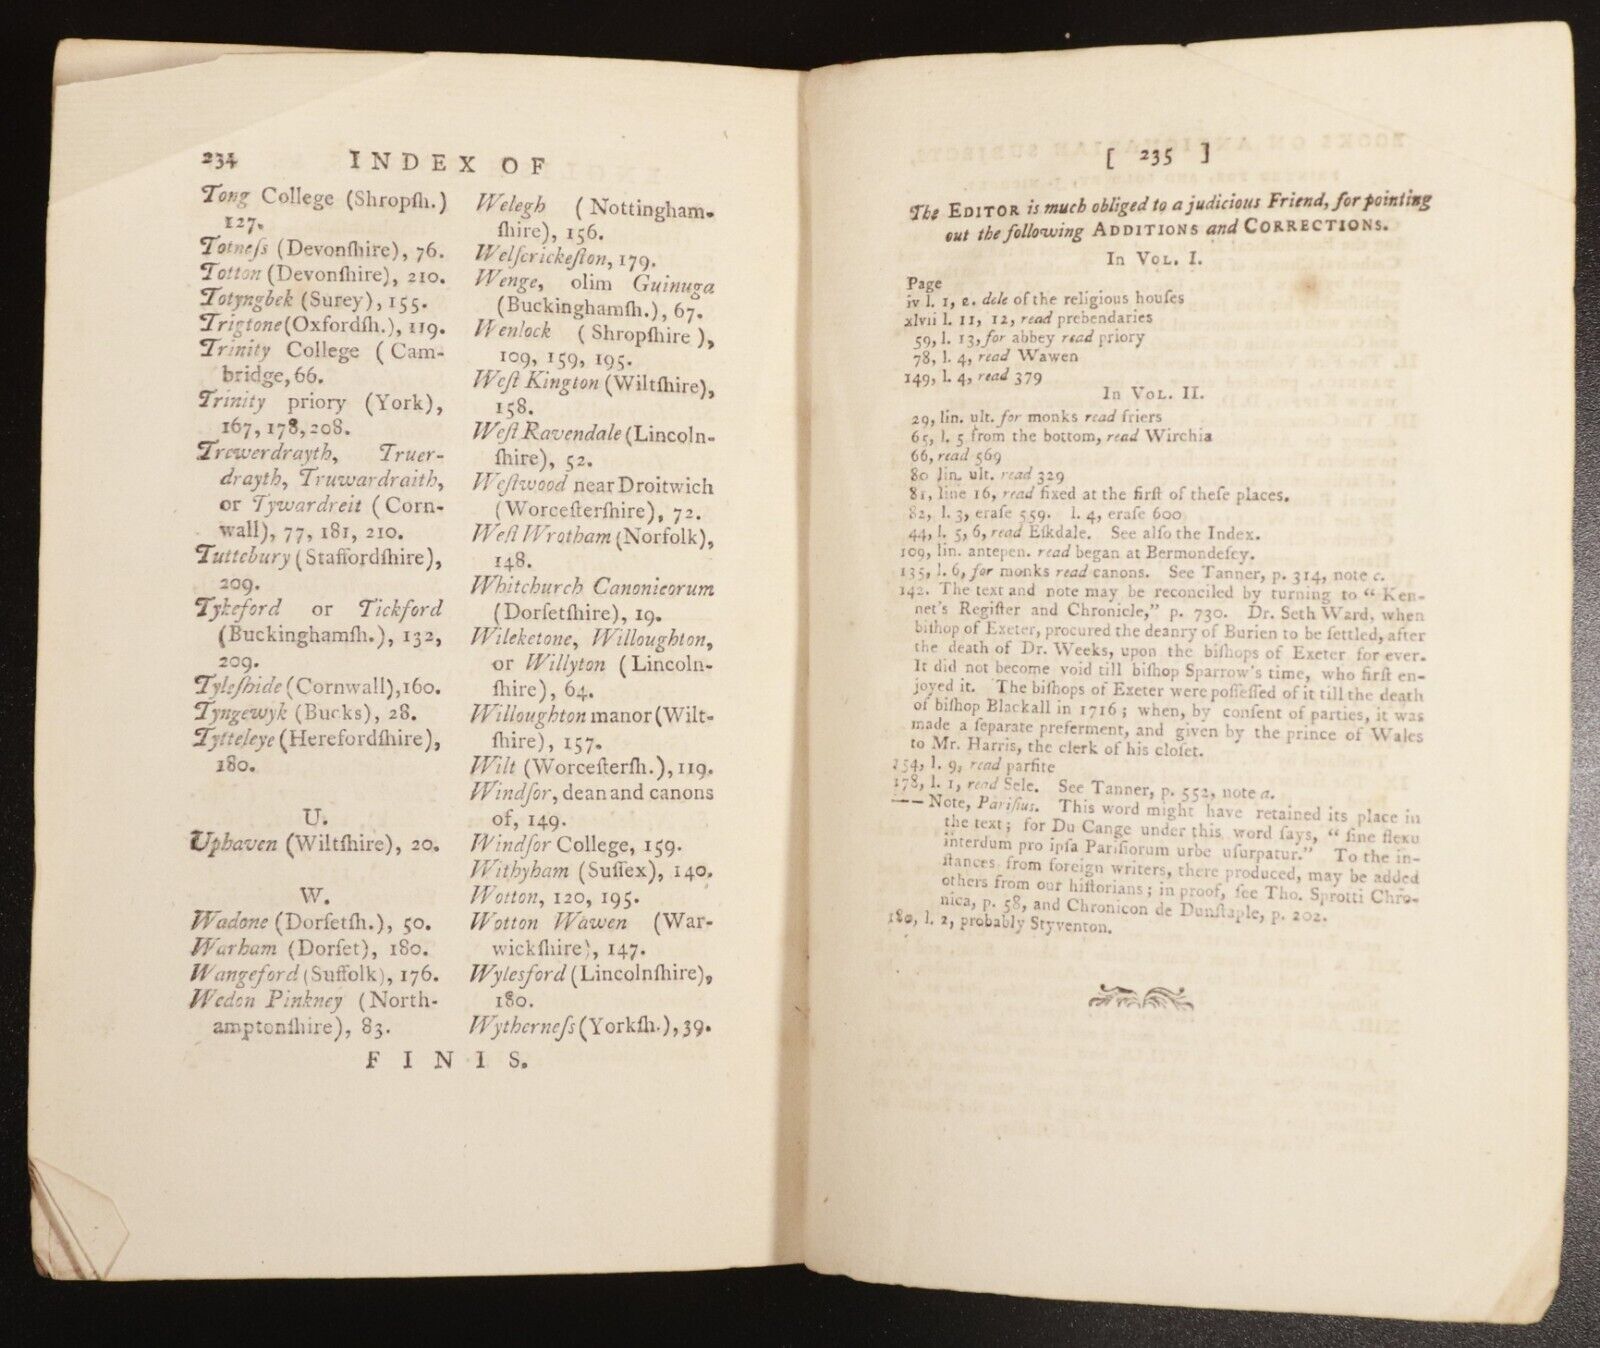 234 INDEX OF
Tong College (Shropſh.)
127.
Totneſs (Devonſhire), 76.
Totton (Devonſhire), 210.
Totyngbek (Surey), 155.
Trigtone (Oxfordſh.), 119.
Trinity College ( Cam-
bridge, 66.
Trinity priory (York),
167, 178, 208.
Trewerdrayth, Truer-
drayth, Truwardraith,
or Tywardreit ( Corn-
wall), 77, 181, 210.
Tuttebury (Staffordſhire),
209.
Tykeford or Tickford
(Buckinghamſh.), 132,
209.
Tyleſhide (Cornwall), 160.
Tyngewyk (Bucks), 28.
Tytteleye (Herefordſhire),
180.
U.
Uphaven (Wiltſhire), 20.
W.
Wadone (Dorſetſh.), 50.
Warham (Dorſet), 180.
Wangeford (Suffolk), 176.
Wedon Pinkney (North-
amptonſhire), 83.
Welegh ( Nottingham-
ſhire), 156.
Welſcrickeſton, 179.
Wenge, olim Guinuga
(Buckinghamſh.), 67.
Wenlock ( Shropſhire ),
109, 159, 195.
Weſt Kington (Wiltſhire),
158.
Weſt Ravendale (Lincoln-
ſhire), 52.
Weſtwood near Droitwich
(Worceſterſhire), 72.
Weſt Wrotham (Norfolk),
148.
Whitchurch Canonicorum
(Dorſetſhire), 19.
Wileketone, Willoughton,
or Willyton ( Lincoln-
ſhire), 64.
Willoughton manor (Wilt-
ſhire), 157.
Wilt (Worceſterſh.), 119.
Windſor, dean and canons
of, 149.
Windſor College, 159.
Withyham (Suſſex), 140.
Wotton, 120, 195.
Wotton Wawen (War-
wickſhire), 147.
Wylesford (Lincolnſhire),
180.
Wytherneſs (Yorkſh.), 39.
F I N I S.
[ 235 ]
The EDITOR is much obliged to a judicious Friend, for pointing
out the following ADDITIONS and CORRECTIONS.
In VOL. I.
Page
iv l. 1, 2. dele of the religious houſes
xlvii l. 11, 12, read prebendaries
59, l. 13, for abbey read priory
78, l. 4, read Wawen
149, l. 4, read 379
In VOL. II.
29, lin. ult. for monks read friers
65, l. 5 from the bottom, read Wirchia
66, read 569
80 lin. ult. read 329
81, line 16, read fixed at the firſt of theſe places.
82, l. 3, eraſe 559. l. 4, eraſe 600
44, l. 5, 6, read Eſkdale. See alſo the Index.
109, lin. antepen. read began at Bermondeſey.
135, l. 6, for monks read canons. See Tanner, p. 314, note c.
142. The text and note may be reconciled by turning to “ Ken-
net's Regiſter and Chronicle,” p. 730. Dr. Seth Ward, when
biſhop of Exeter, procured the deanry of Burien to be ſettled, after
the death of Dr. Weeks, upon the biſhops of Exeter for ever.
It did not become void till biſhop Sparrow's time, who firſt en-
joyed it. The biſhops of Exeter were poſſeſſed of it till the death
of biſhop Blackall in 1716 ; when, by conſent of parties, it was
made a ſeparate preferment, and given by the prince of Wales
to Mr. Harris, the clerk of his cloſet.
154, l. 9, read parſite
178, l. 1, read Sele. See Tanner, p. 552, note a.
—— Note, Pariſius. This word might have retained its place in
the text ; for Du Cange under this word ſays, “ ſine flexu
interdum pro ipſa Pariſiorum urbe uſurpatur.” To the in-
ſtances from foreign writers, there produced, may be added
others from our hiſtorians ; in proof, ſee Tho. Sprotti Chro-
nica, p. 58, and Chronicon de Dunſtaple, p. 202.
180, l. 2, probably Styventon.